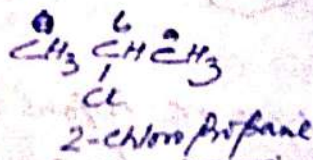 a b a
CH3 CH CH3
Cl
2-chloropropane